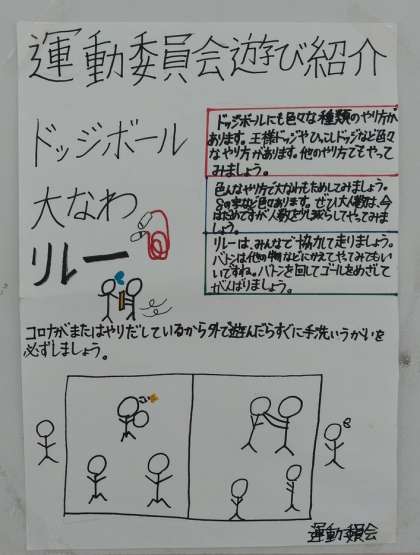 運動委員会遊び紹介
ドッジボール
ドッジボールにも色々な種類のやり方が
あります。王様ドッジやひっこしドッジなど色々
なやり方があります。他のやり方でもやって
みましょう。
大なわ
色んなやり方で大なわもためしてみましょう。
8の字など色々あります。ぜひ大人数は、今
はだめですが人数を少し減らしてやってみま
しょう。
リレー
リレーは、みんなで協力して走りましょう。
バトンは他の物などにかえてやってみてもい
いですね。バトンを回してゴールをめざして
がんばりましょう。
コロナがまたはやりだしているから外で遊んだらすぐに手洗いうがいを
必ずしましょう。
運動委員会